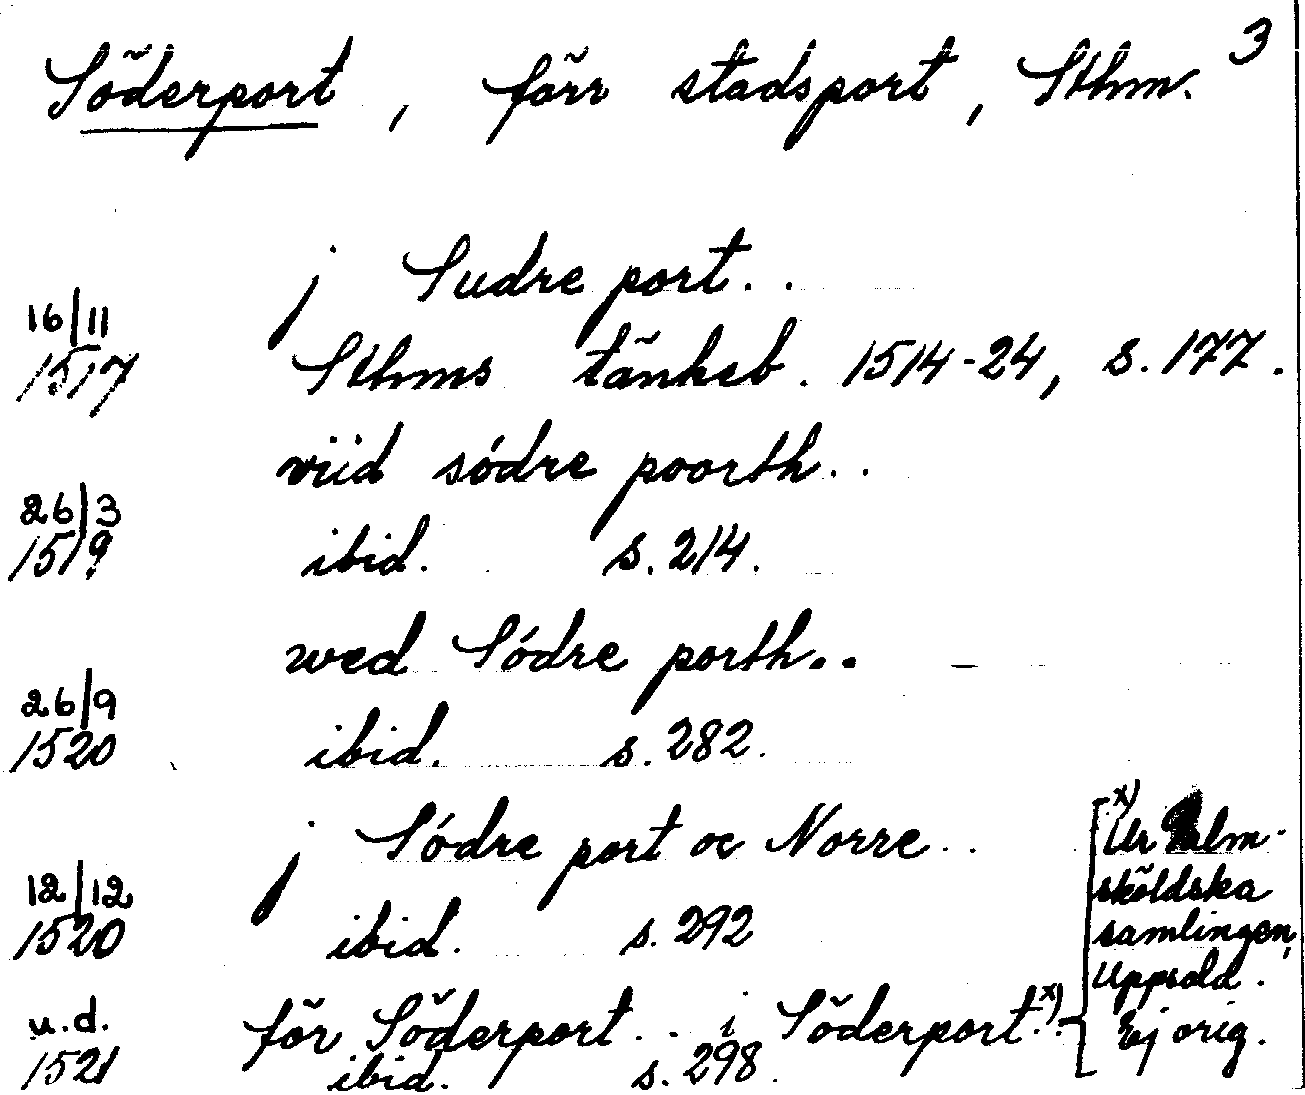 3
Söderport, förr stadsport, Sthm.
j Sudre port..
16/11
1517 Sthms tänkeb. 1514-24, s. 177.
viid södre poorth..
26/3
1519 ibid. s. 214.
wed Södre porth..
26/9
1520 ibid. s. 282.
j Södre port oc Norre..
12/12
1520 ibid. s. 292
u.d. för Söderport... i Söderport x)..
1521 ibid. s. 298.
x)
Ur Palm-
sköldska
samlingen,
Uppsala.
Ej orig.